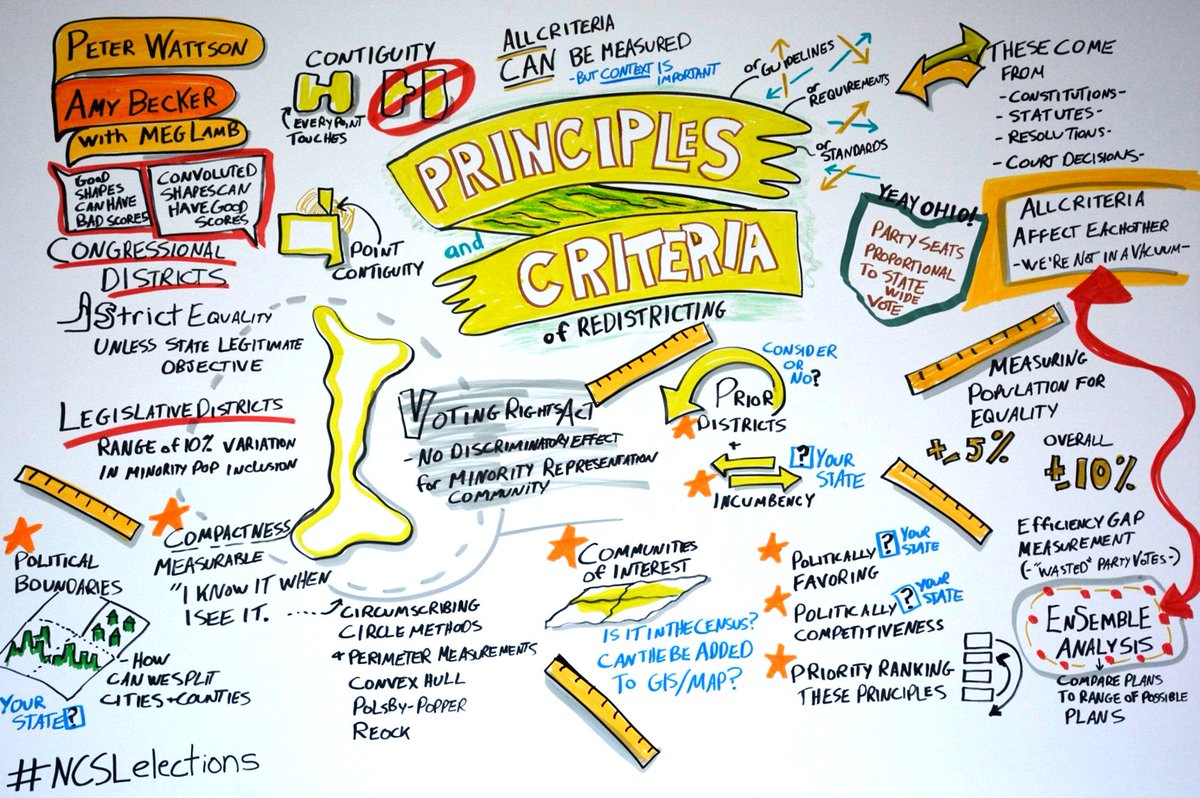 PETER WATTSON
AMY BECKER
with MEG LAMB
GOOD
SHAPES
CAN HAVE
BAD SCORES
CONVOLUTED
SHAPES CAN
HAVE GOOD
SCORES
CONTIGUITY
EVERY POINT
TOUCHES
POINT
CONTIGUITY
ALL CRITERIA
CAN BE MEASURED
- BUT CONTEXT IS
IMPORTANT
PRINCIPLES
and
CRITERIA
of REDISTRICTING
or GUIDELINES
or REQUIREMENTS
or STANDARDS
THESE COME
FROM
- CONSTITUTIONS -
- STATUTES -
- RESOLUTIONS -
- COURT DECISIONS -
YEAY OHIO!
PARTY SEATS
PROPORTIONAL
TO STATE
WIDE
VOTE
ALL CRITERIA
AFFECT EACHOTHER
- WE'RE NOT IN A VACUUM -
CONGRESSIONAL
DISTRICTS
Strict EQUALITY
UNLESS STATE LEGITIMATE
OBJECTIVE
LEGISLATIVE DISTRICTS
RANGE of 10% VARIATION
IN MINORITY POP INCLUSION
VOTING RIGHTS ACT
- NO DISCRIMINATORY EFFECT
for MINORITY REPRESENTATION
COMMUNITY
CONSIDER
OR
NO?
PRIOR
DISTRICTS
+
INCUMBENCY
? YOUR
STATE
MEASURING
POPULATION FOR
EQUALITY
+-5%
OVERALL
±10%
EFFICIENCY GAP
MEASUREMENT
(-"WASTED" PARTY VOTES-)
ENSEMBLE
ANALYSIS
COMPARE PLANS
TO RANGE OF POSSIBLE
PLANS
POLITICAL
BOUNDARIES
- HOW
CAN WE SPLIT
CITIES + COUNTIES
YOUR
STATE?
COMPACTNESS
MEASURABLE
"I KNOW IT WHEN
I SEE IT.
CIRCUMSCRIBING
CIRCLE METHODS
+ PERIMETER MEASUREMENTS
CONVEX HULL
POLSBY-POPPER
REOCK
COMMUNITIES
OF INTEREST
IS IT IN THE CENSUS?
CAN THE BE ADDED
TO GIS/MAP?
POLITICALLY ? YOUR
STATE
FAVORING
POLITICALLY ? YOUR
STATE
COMPETITIVENESS
PRIORITY RANKING
THESE PRINCIPLES
#NCSLelections